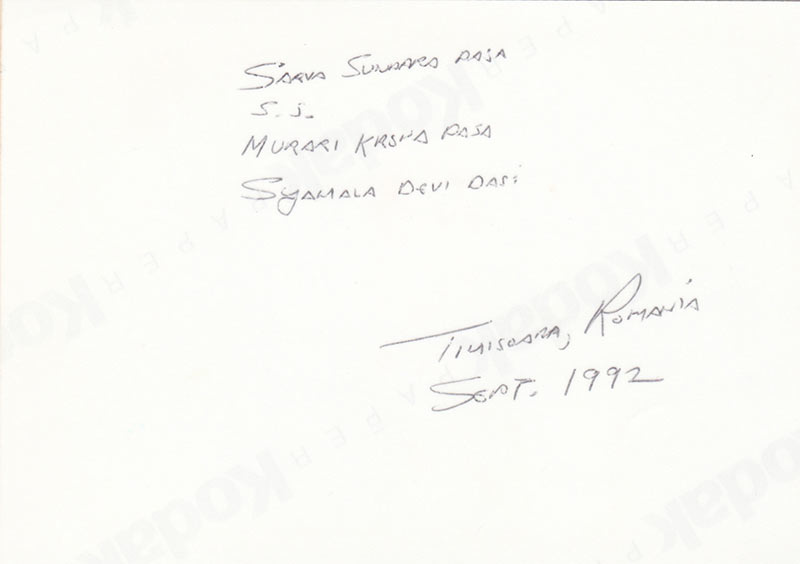 Sarva Sundara Dasa
S.S.
Murari Krsna Dasa
Syamala Devi Dasi
Timisoara, Romania
Sept. 1992
Kodak
PAPER
Kodak
PAPER
Kodak
PAPER
Kodak
PAPER
Kodak
Kodak